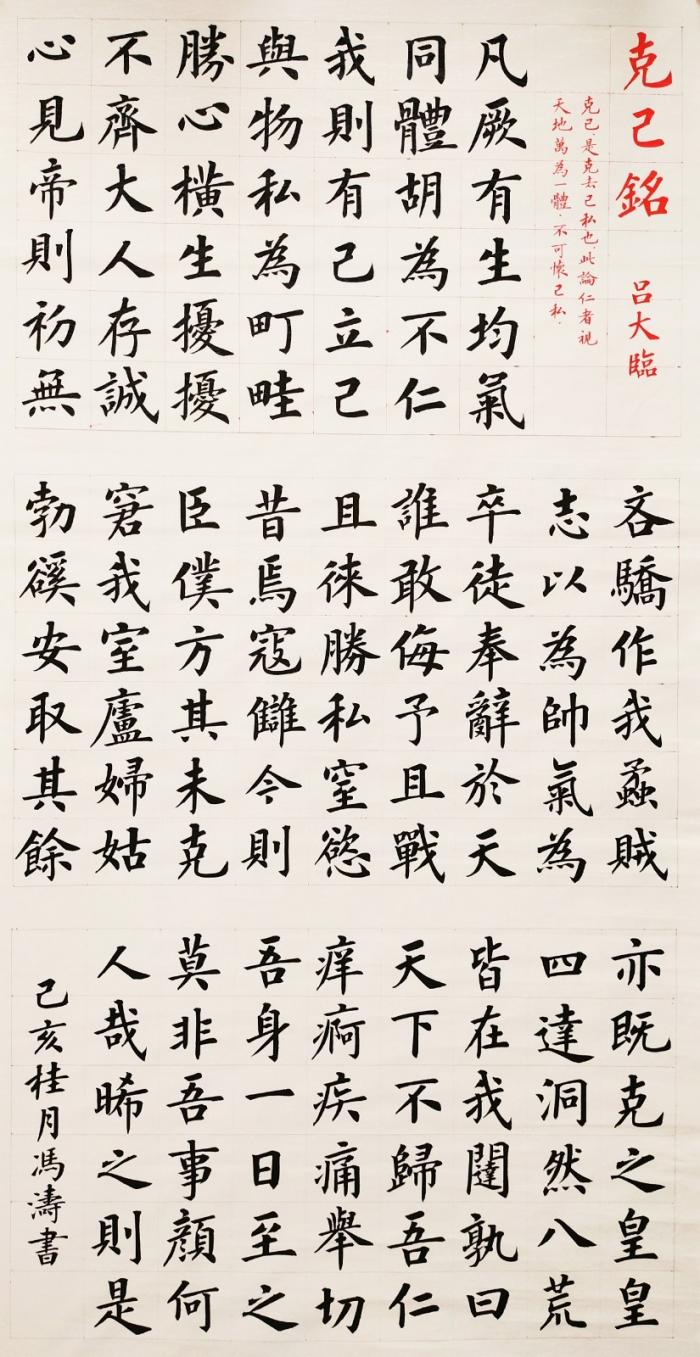 克己銘
呂大臨
克己是克去己私也此論仁者視
天地萬為一體不可懷己私
凡厥有生均氣
同體胡為不仁
我則有己立己
與物私為町畦
勝心橫生擾擾
不齊大人存誠
心見帝則初無
吝驕作我蟊賊
志以為帥氣為
卒徒奉辭於天
誰敢侮予且戰
且徠勝私窒慾
昔焉寇讎今則
臣僕方其未克
窘我室廬婦姑
勃磎安取其餘
亦既克之皇皇
四達洞然八荒
皆在我闥孰曰
天下不歸吾仁
痒痾疾痛舉切
吾身一日至之
莫非吾事顏何
人哉晞之則是
己亥桂月馮濤書